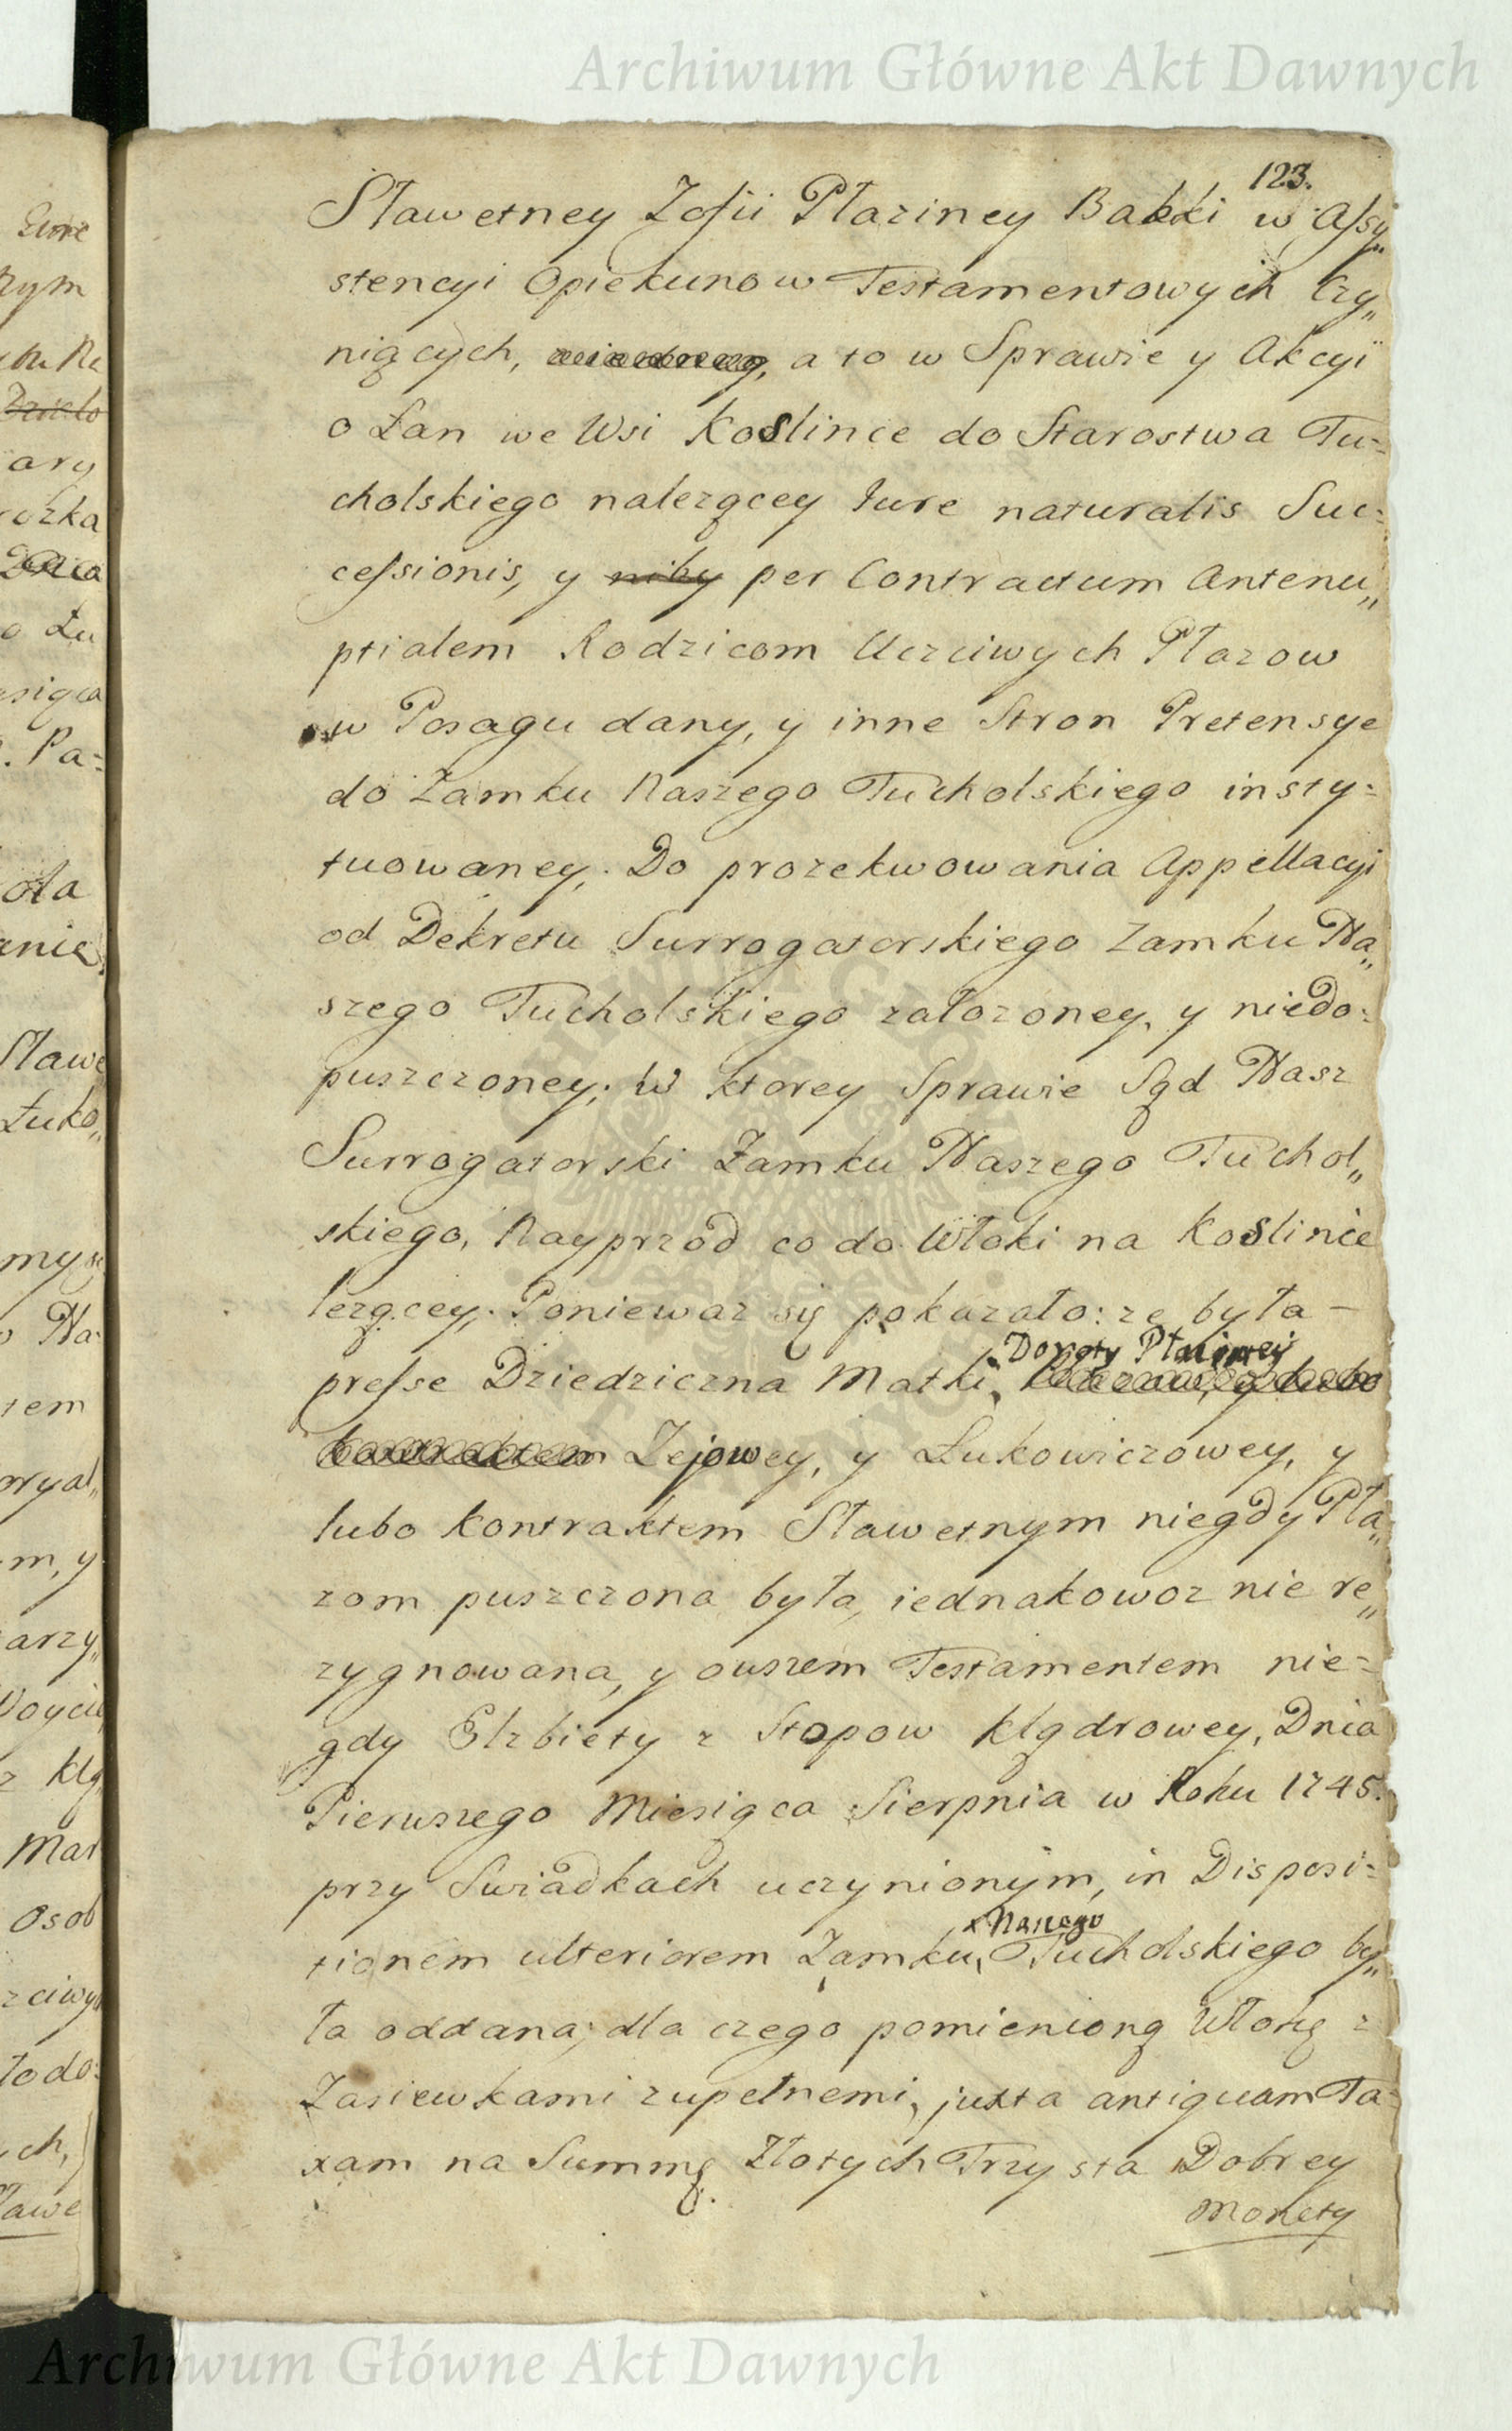 Archiwum Główne Akt Dawnych
123.
Sławetney Zofii Płaziney Babki w Assy„
stencyi Opiekunow Testamentowych Czy„
niących, a to w Sprawie y Akcyi
o Łan we Wsi Koslince do Starostwa Tu=
cholskiego nalezącey Iure naturalis Suc=
cessionis, y niby per Contractum Antenu„
ptialem Rodzicom Uczciwych Płazow
w Posagu dany, y inne Stron Pretensye
do Zamku Naszego Tucholskiego insty=
tuowaney. Do prozekwowania Appellacyi
od Dekretu Surrogatorskiego Zamku Na„
szego Tucholskiego załozoney, y niedo=
puszczoney; W ktorey Sprawie Sąd Nasz
Surrogatorski Zamku Naszego Tuchol„
skiego, Nayprzod co do Włoki na Koslince
lezącey. Poniewaz się pokazało: ze była –
presse Dziedziczna Matki, Doroty Płaziney
Zejowey, y Łukowiczowey, y
lubo kontraktem Sławetnym niegdy Pła„
zom puszczona była, iednakowoz nie re„
zygnowana, y owszem Testamentem nie=
gdy Elzbiety z Stopow Klądrowey, Dnia
Pierwszego Miesiąca Sierpnia w Roku 1745.
przy Swiadkach uczynionym, in Disposi=
tionem ulteriorem Zamku, x Naszego Tucholskiego by„
ła oddana; dla czego pomienioną Włokę z
Zasiewkami zupełnemi, juxta antiquam Ta=
xam na Summę Złotych Trzysta Dobrey
Monety
Archiwum Główne Akt Dawnych